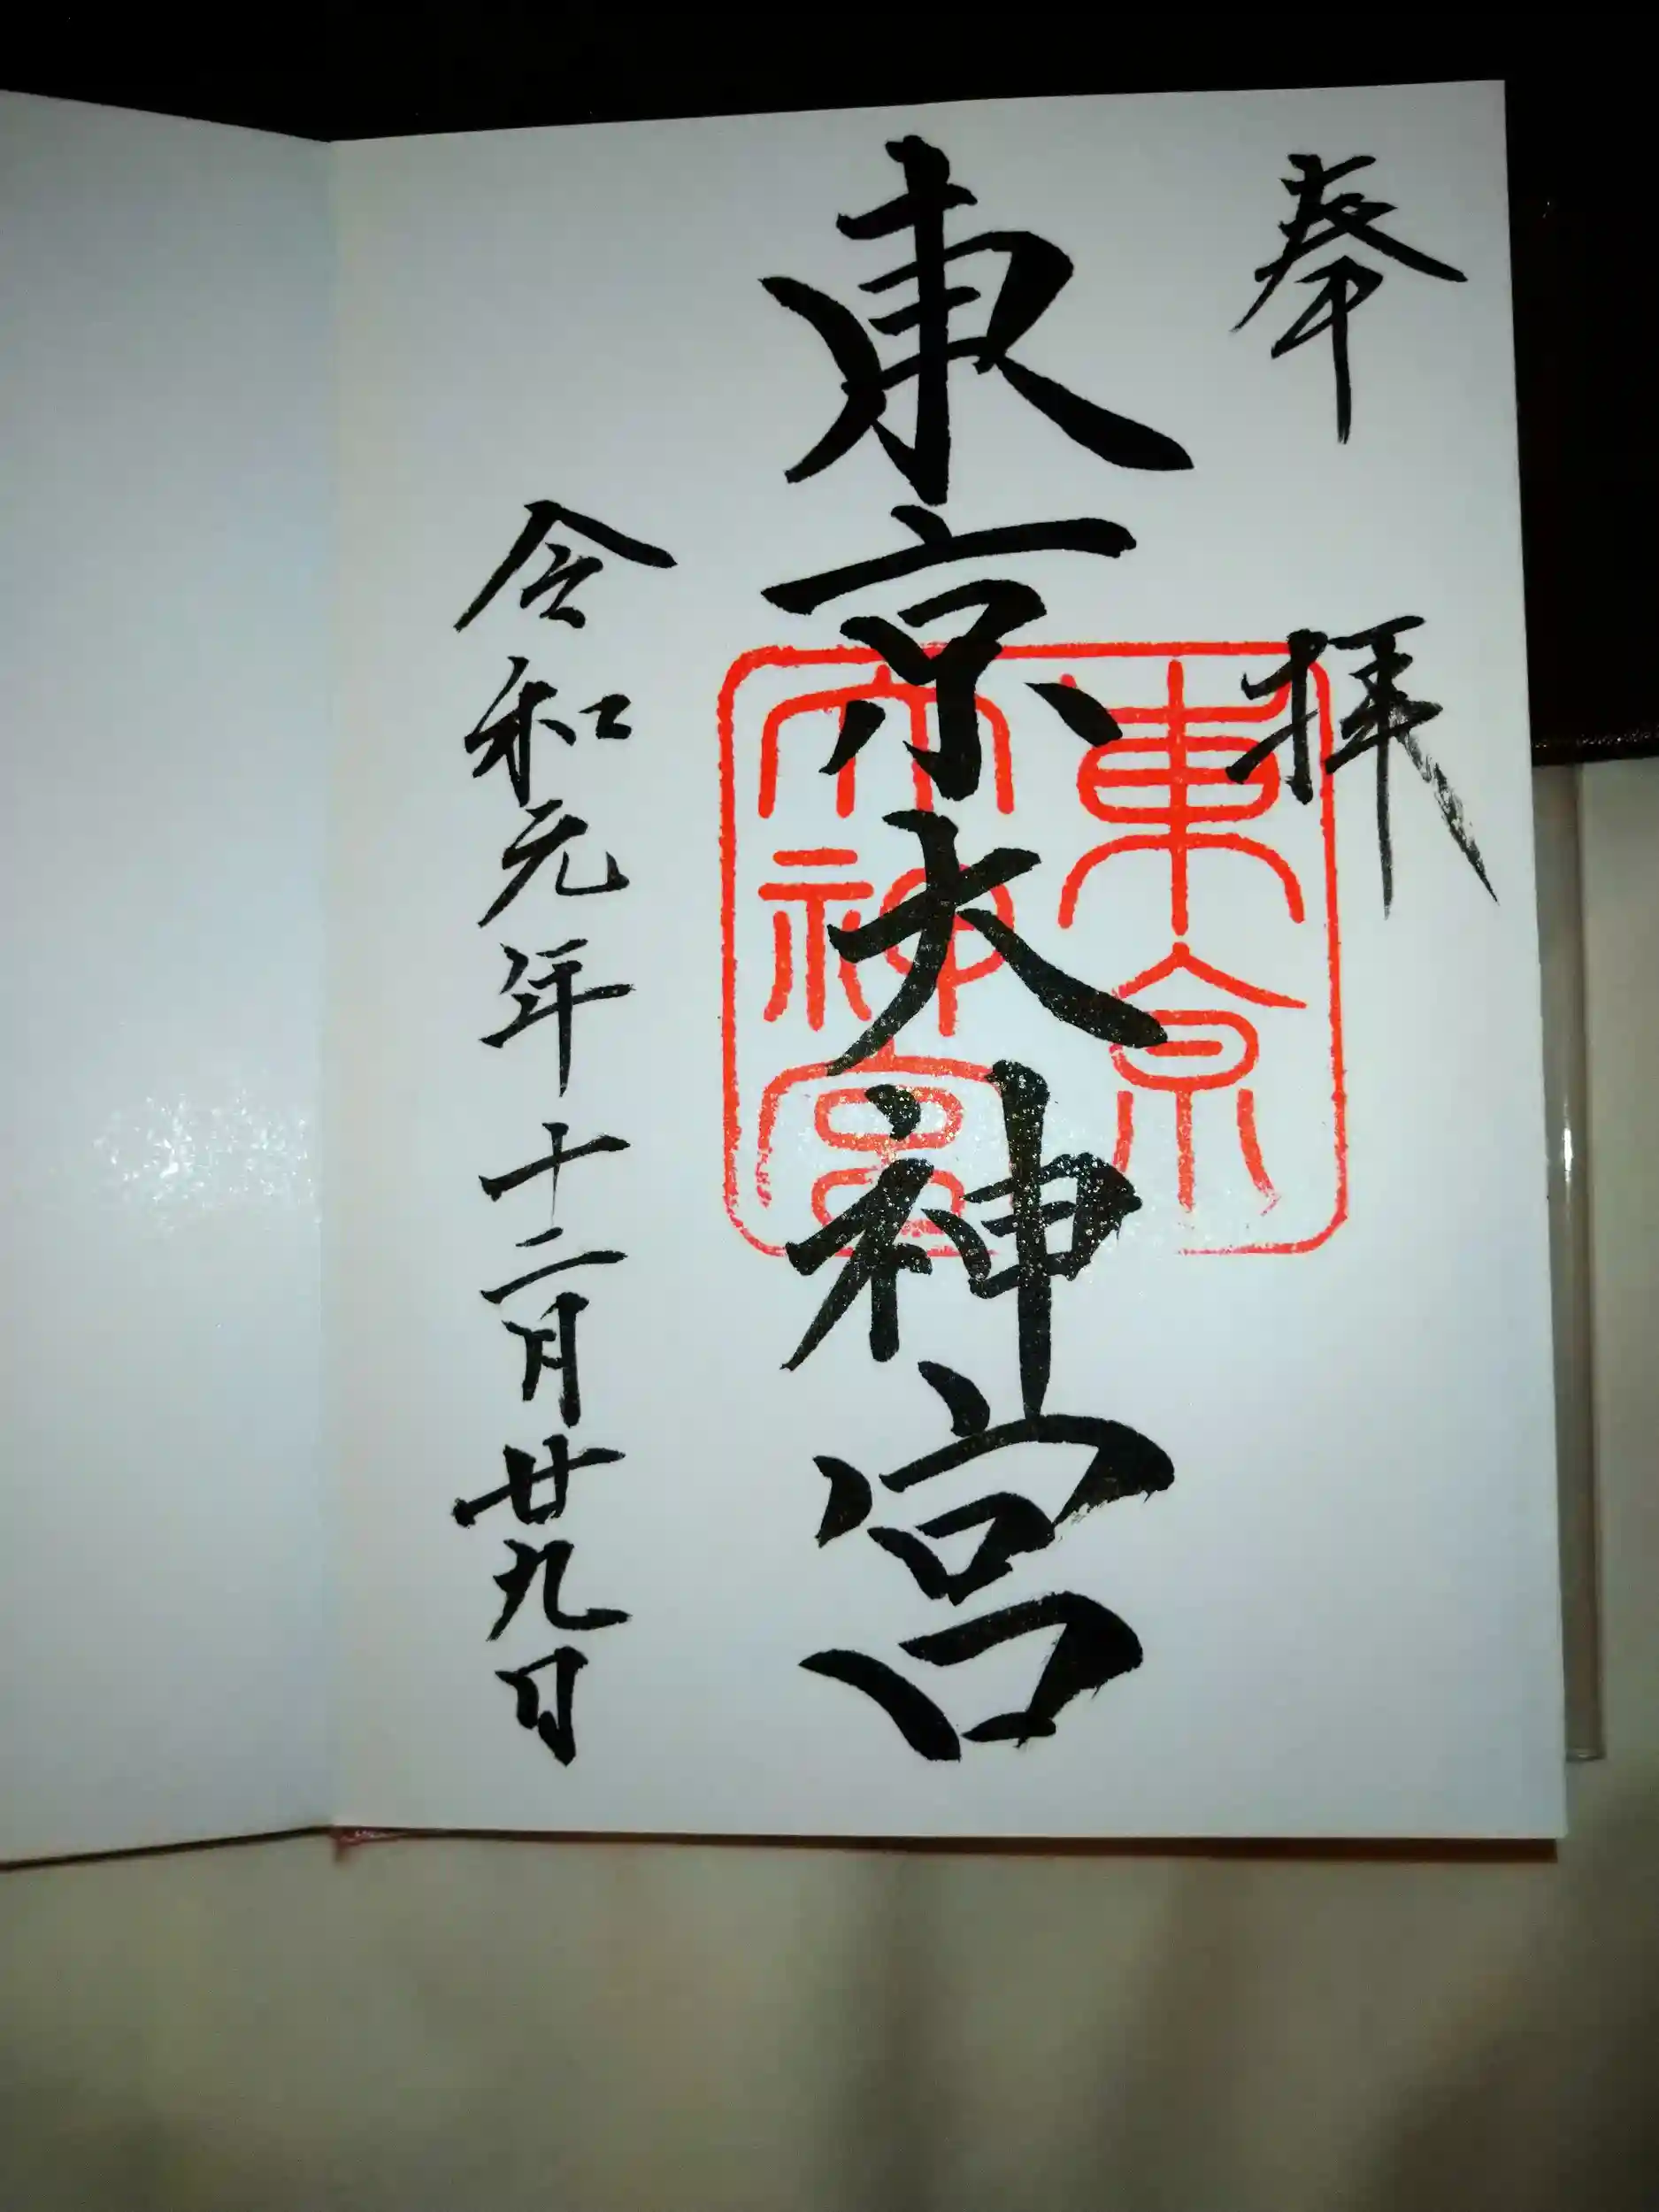 奉拝
東京大神宮
東京
大神宮
令和元年十二月廿九日